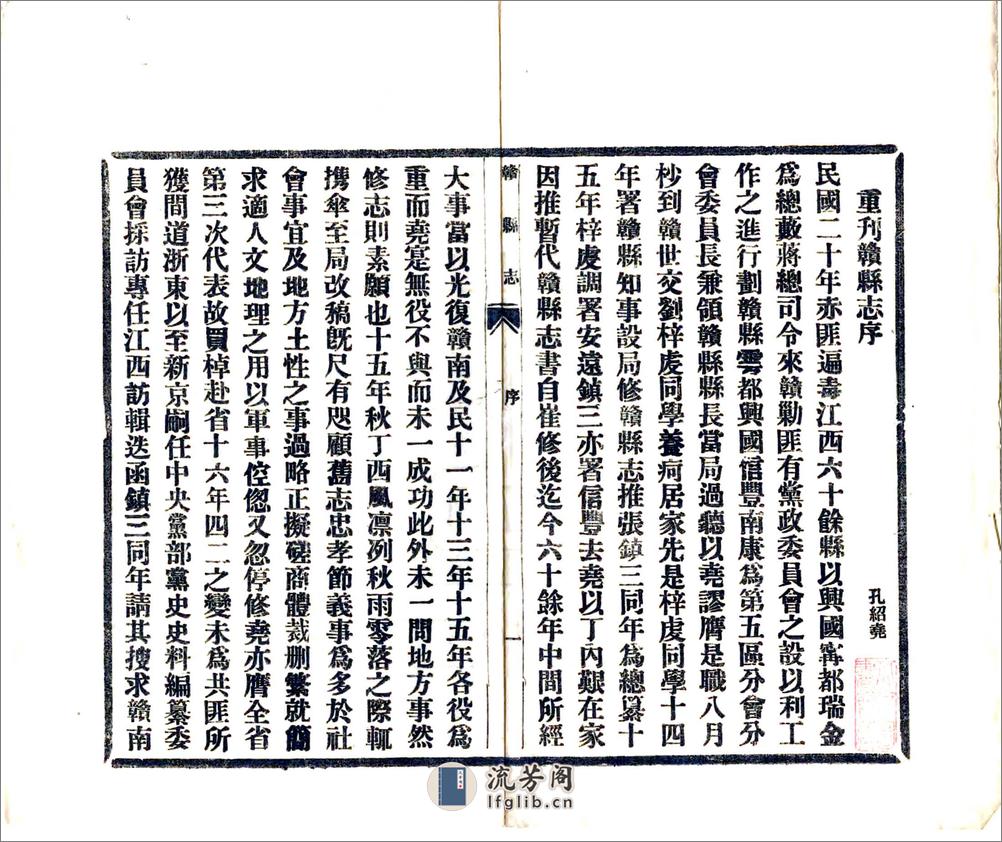 重刋贛縣志序
孔紹堯
民國二十年赤匪遍毒江西六十餘縣以興國寗都瑞金
爲總藪蔣總司令來贛勦匪有黨政委員會之設以利工
作之進行劃贛縣雩都興國信豐南康爲第五區分會分
會委員長兼領贛縣縣長當局過聽以堯謬膺是職八月
杪到贛世交劉梓虔同學養疴居家先是梓虔同學十四
年署贛縣知事設局修贛縣志推張鎮三同年爲總纂十
五年梓虔調署安遠鎮三亦署信豐去堯以丁內艱在家
因推暫代贛縣志書自崔修後迄今六十餘年中間所經
贛縣志
序
一
大事當以光復贛南及民十一年十三年十五年各役爲
重而堯寔無役不與而未一成功此外未一問地方事然
修志則素願也十五年秋丁西風凛冽秋雨零落之際輒
携傘至局改稿旣尺有咫顧舊志忠孝節義事爲多於社
會事宜及地方土性之事過略正擬磋商體裁删繁就簡
求適人文地理之用以軍事倥偬又忽停修堯亦膺全省
第三次代表故買棹赴省十六年四二之變未爲共匪所
獲間道浙東以至新京嗣任中央黨部黨史史料編纂委
員會採訪專任江西訪輯迭函鎮三同年請其搜求贛南
流芳阁
lfglib.cn